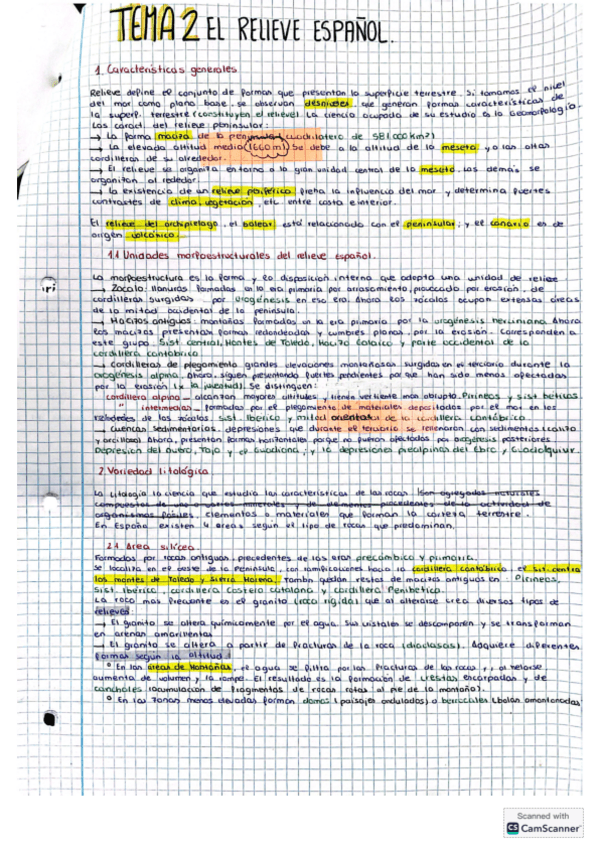 TEMA 2 EL RELIEVE ESPAÑOL.
1. Características generales
Relieve define el conjunto de formas que presentan la superficie terrestre. Si tomamos el nivel
del mar como plano base, se observan desniveles que generan formas características de
la superf. terrestre (constituyen el relieve). La ciencia ocupada de su estudio es la Geomorfología.
Las caract del relieve peninsular:
→ La forma maciza de la península (cuadrilatero de 581.000 km2)
→ La elevada altitud media (660m) Se debe a la altitud de la meseta y a las altas
cordilleras de su alrededor.
→ El relieve se organiza entorno a la gran unidad central de la meseta, las demás se
organizan al rededor.
→ la existencia de un relieve periférico frena la influencia del mar y determina fuertes
contrastes de clima, vegetación, etc entre costa e interior.
El relieve del archipielago, el balear está relacionado con el peninsular; y el canario es de
origen volcánico.
1.1 Unidades morfoestructurales del relieve español.
La morfoestructura es la forma y la disposición interna que adopta una unidad de relieve
→ Zócalo: llanuras formadas en la era primaria por arrasamiento, provocado por erosión, de
cordilleras surgidas por orogénesis en esa era. Ahora los zócalos ocupan extensas áreas
de la mitad occidental de la península.
→ Macizos antiguos: montañas formadas en la era primaria por la orogénesis herciniana. Ahora
los macizos presentan formas redondeadas y cumbres planas, por la erosión. Corresponden a
este grupo: Sist. central, Montes de Toledo, Macizo Galaico y parte occidental de la
cordillera cantábrica
→ cordilleras de plegamiento grandes elevaciones montañosas surgidas en el terciario durante la
orogénesis alpina. Ahora, siguen presentando fuertes pendientes por que han sido menos afectadas
por la erosión (x la juventud). Se distinguen:
cordillera alpina → alcanzan mayores altitudes y tienen vertiente más abrupto. Pirineos y sist. beticas.
" intermedias → formadas por el plegamiento de materiales depositados por el mar en los
rebordes de los zócalos sist. Ibérico y mitad oriental de la cordillera cantábrica.
→ cuencas sedimentarias: depresiones que durante el terciario se rellenaron con sedimentos (caliza
y arcillosos) Ahora, presentan formas horizontales porque no fueron afectadas por orogénesis posteriores
Depresion del Duero, Tajo y el Guadiana; y la depresiones prealpinas del Ebro y Guadalquivir.
2. Variedad litológica
La Litología la ciencia que estudia las características de las rocas (son agregados naturales
compuestos de uno o varios minerales y de elementos procedentes de la actividad de
organismos fósiles, elementos o materiales que forman la corteza terrestre.
En España existen 4 areas según el tipo de rocas que predominan.
2.1. Area silícea
Formadas por rocas antiguas, precedentes de las eras precámbico y primaria.
Se localiza en el oeste de la Península, con ramificaciones hacia la cordillera cantábrica, el sist. centra
los montes de Toledo y Sierra Morena. Tambn quedan restos de macizos antiguos en: Pirineos,
Sist. Ibérico, cordillera Costero catalana y cordillera Penibética.
La roca mas frecuente es el granito (roca rigida) que al alterarse crea diversos tipos de
relieves:
→ El granito se altera químicamente por el agua. Sus cristales se descomponen y se transforman
en arenas amarillentas
→ El granito se altera a partir de fracturas de la roca (diaclasas). Adquiere diferentes
formas según la altitud:
° En las áreas de Montañas, el agua se filtra por las fracturas de las rocas y, al helarse
aumenta de volumen y la rompe. El resultado es la formación de crestas escarpadas y de
canchales (acumulación de fragmentos de rocas rotas al pie de la montaña).
° En las zonas menos elevadas forman domos (paisajes ondulados) o berrocales (bolas amontonadas
Scanned with
CS CamScanner